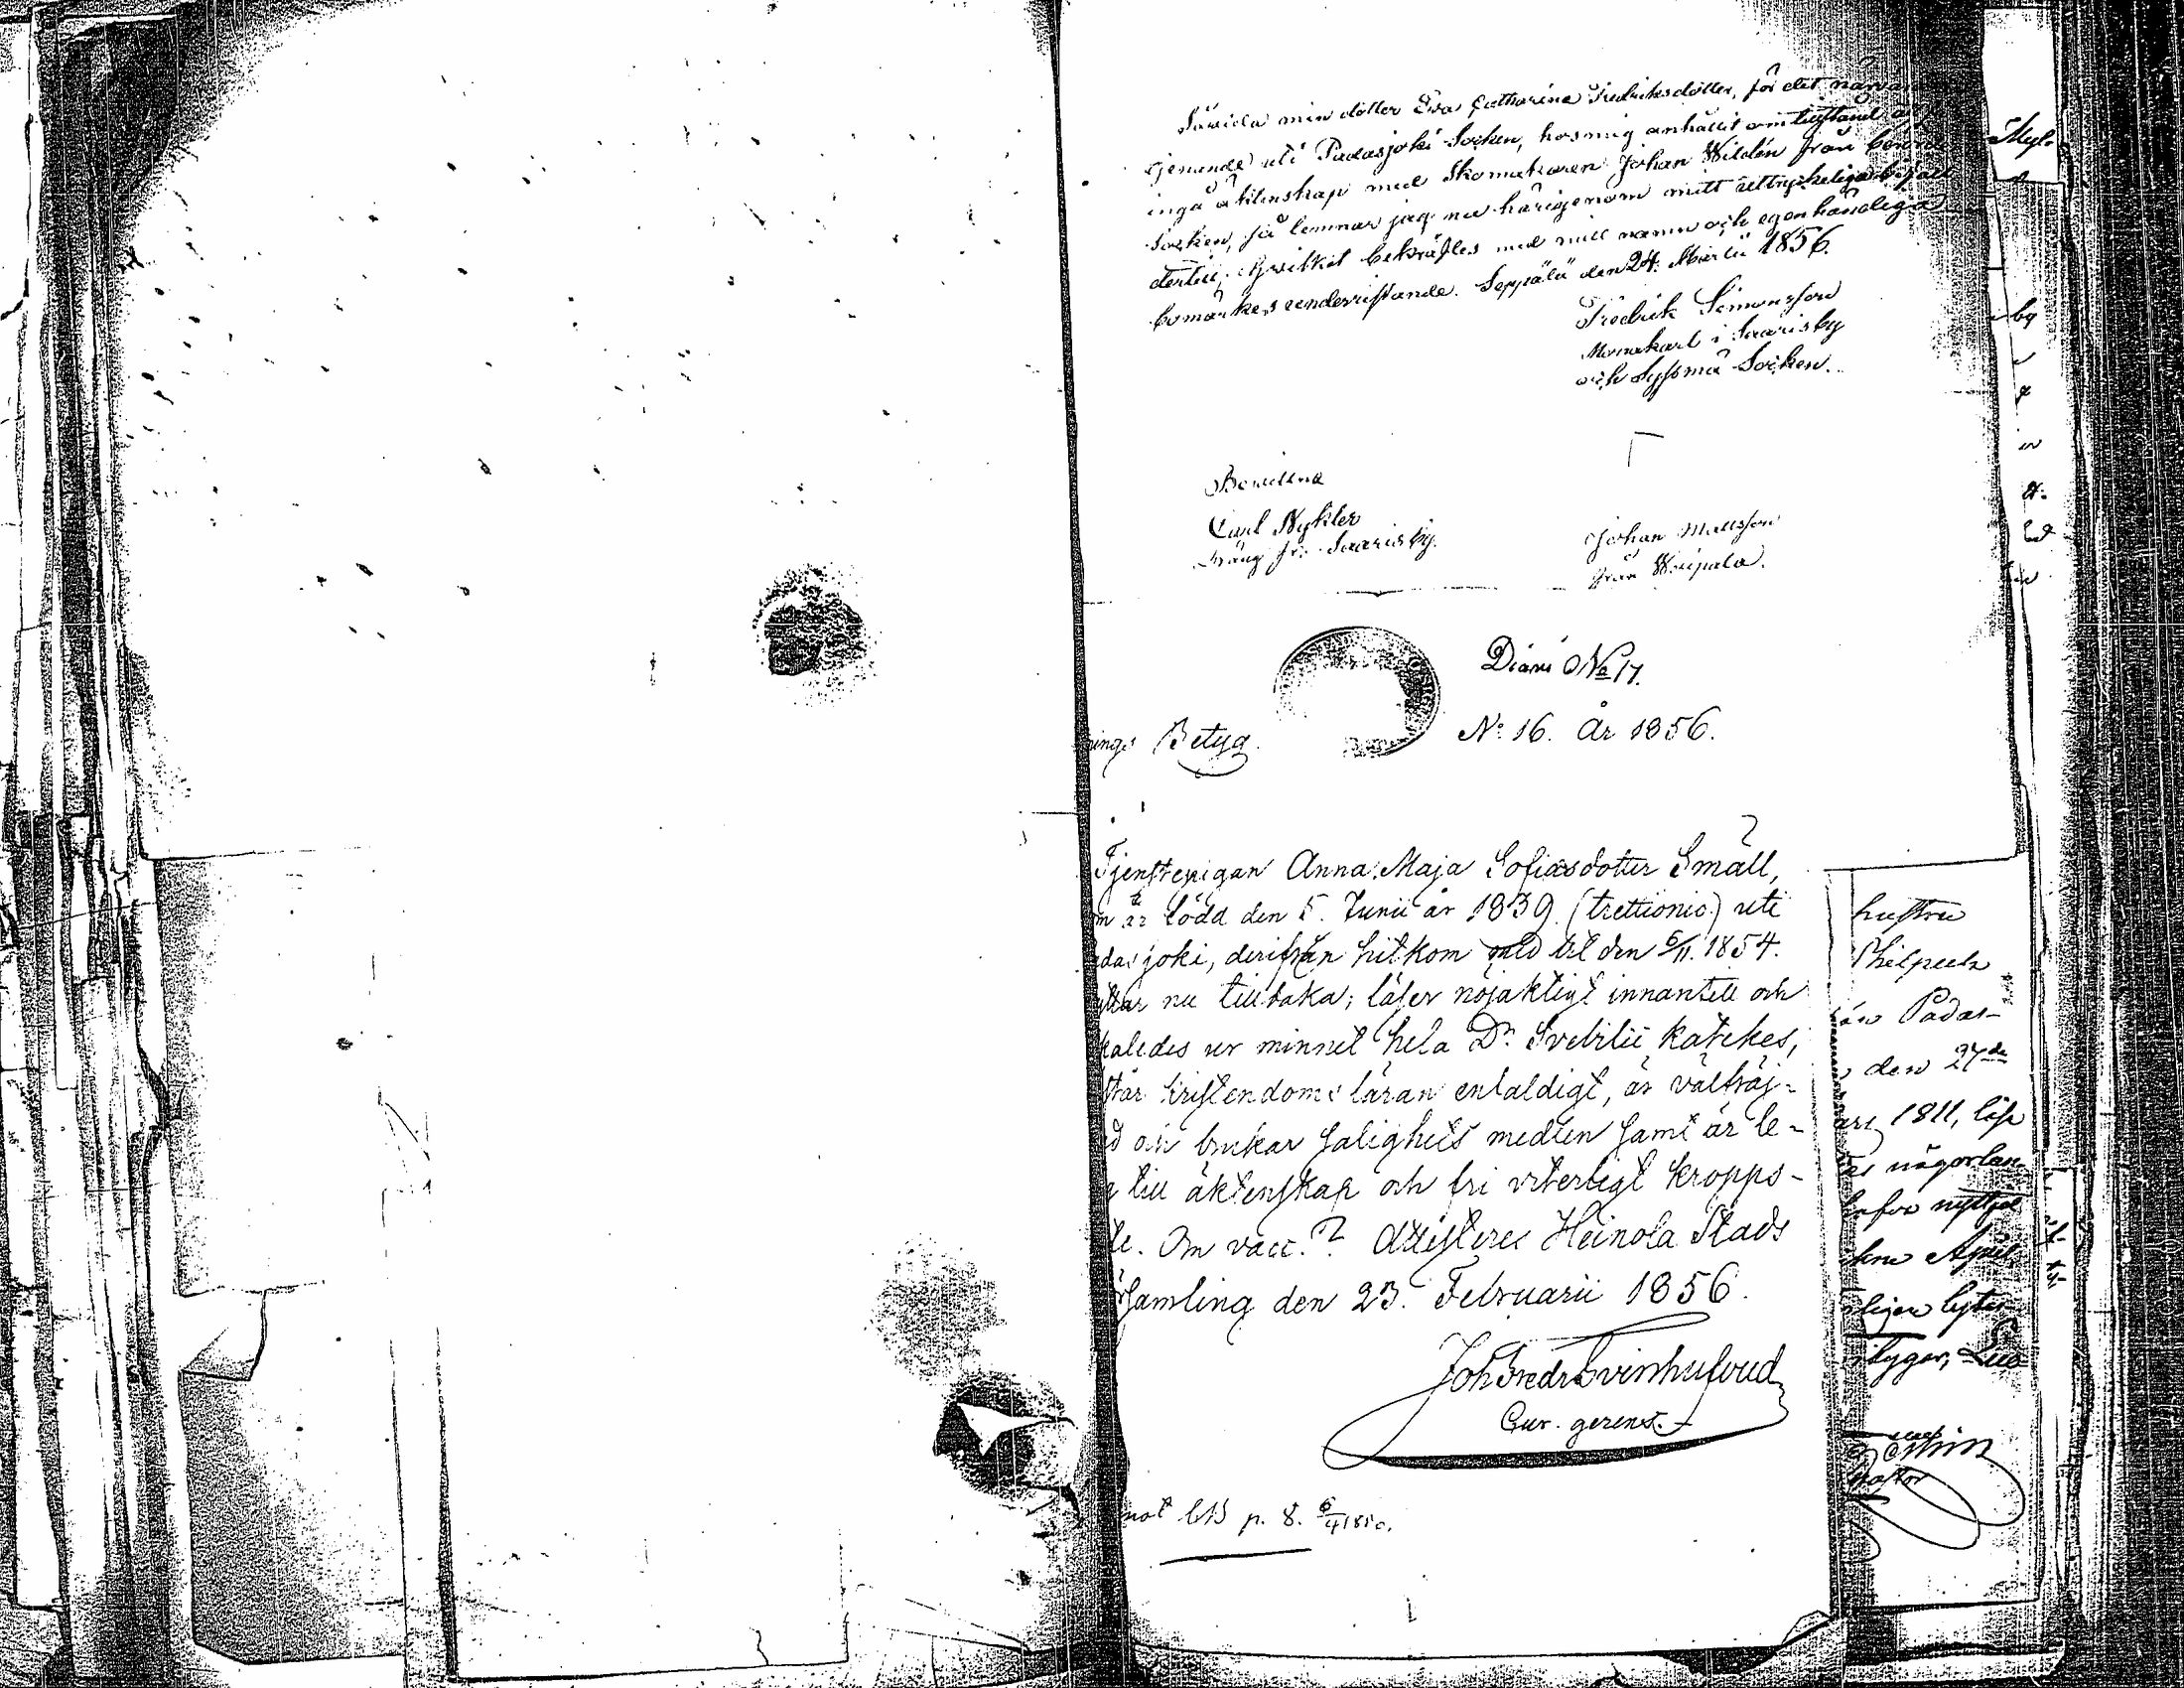 Såvida min dotter Eva Catharina Fredriksdotter, för det närva
tjenande uti Padasjoki Socken, hos mig anhållit om tillstånd at
ingå äktenskap med Skomakaren Johan Wildén från
Socken, så lemnar jag nu härigenom mitt uttryckeliga bifall
dertill; Hvilket bekräftes med mitt namn och egenhändiga
bomärkes underristande. Seppälä den 24. Martii 1856.
Fredrik Simonsson
i Saarisby
och Sysmä Socken.
Bevittna
Carl Nykler
Dräng fr. Saarisby.
Johan Mattsson
från
Diarii No 17.
nings Betyg.
No 16. År 1856.
Tjenstepigan Anna Maja Sofiasdotter Smäll,
m är född den 5. Junii år 1839. (trettionio) uti
adasjoki, derifrån hitkom med btl den 5/11. 1854.
yttar nu tillbaka; läser nöjaktigt innantill och
kaledes ur minnet hela Dr Svebilii katekes;
står kristendoms läran enfaldigt, är välfräj-
d och brukar salighets medlen samt är le-
g till äktenskap och fri viterligt kropps-
te. Om vacc.? Attesteres Heinola Stads
rsamling den 23. Februarii 1856.
Joh Fredr Svinhufvud
Cur. gerens.
not CB p. 8.
hustru
Padas-
den 27de
1811, läse
någorlun
nyttjat
April
lyten